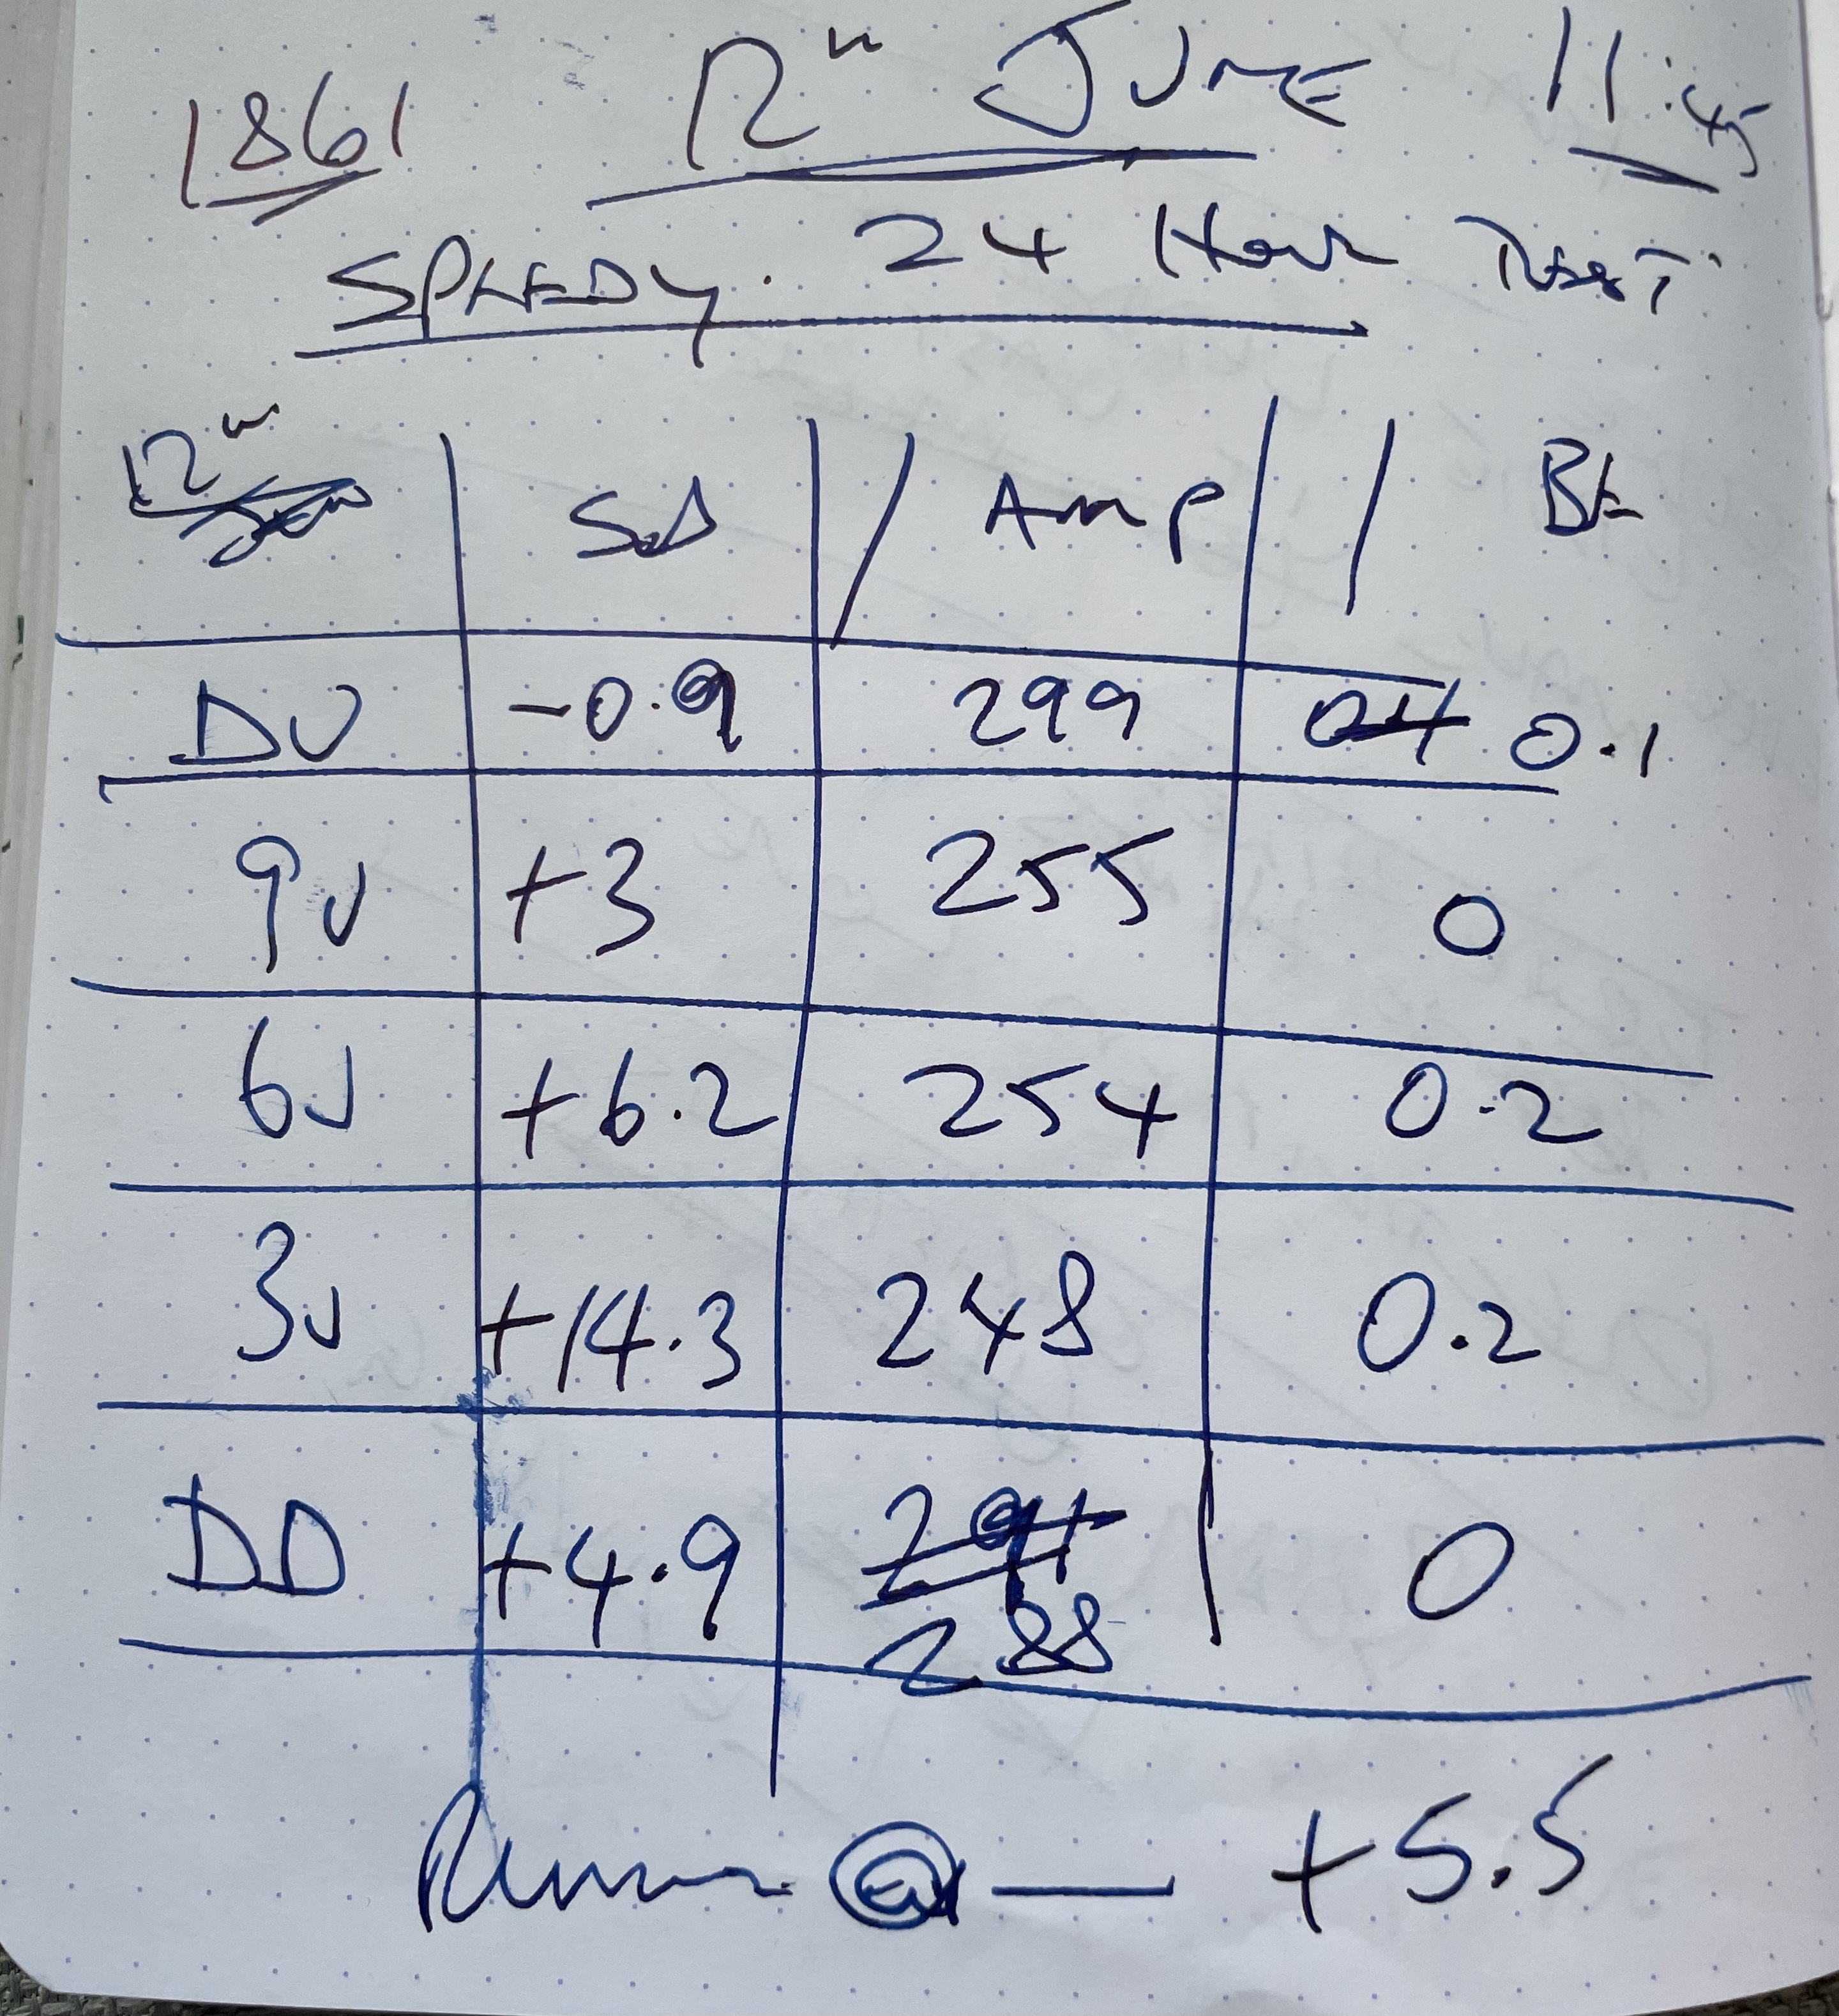 1861 12th JUNE 11:45
SPEEDY. 24 Hour TEST
12th SpD Amp BE
DU -0.9 299 0.1
9U +3 255 0
6U +6.2 254 0.2
3U +14.3 248 0.2
DD +4.9 288 0
@ — +5.5